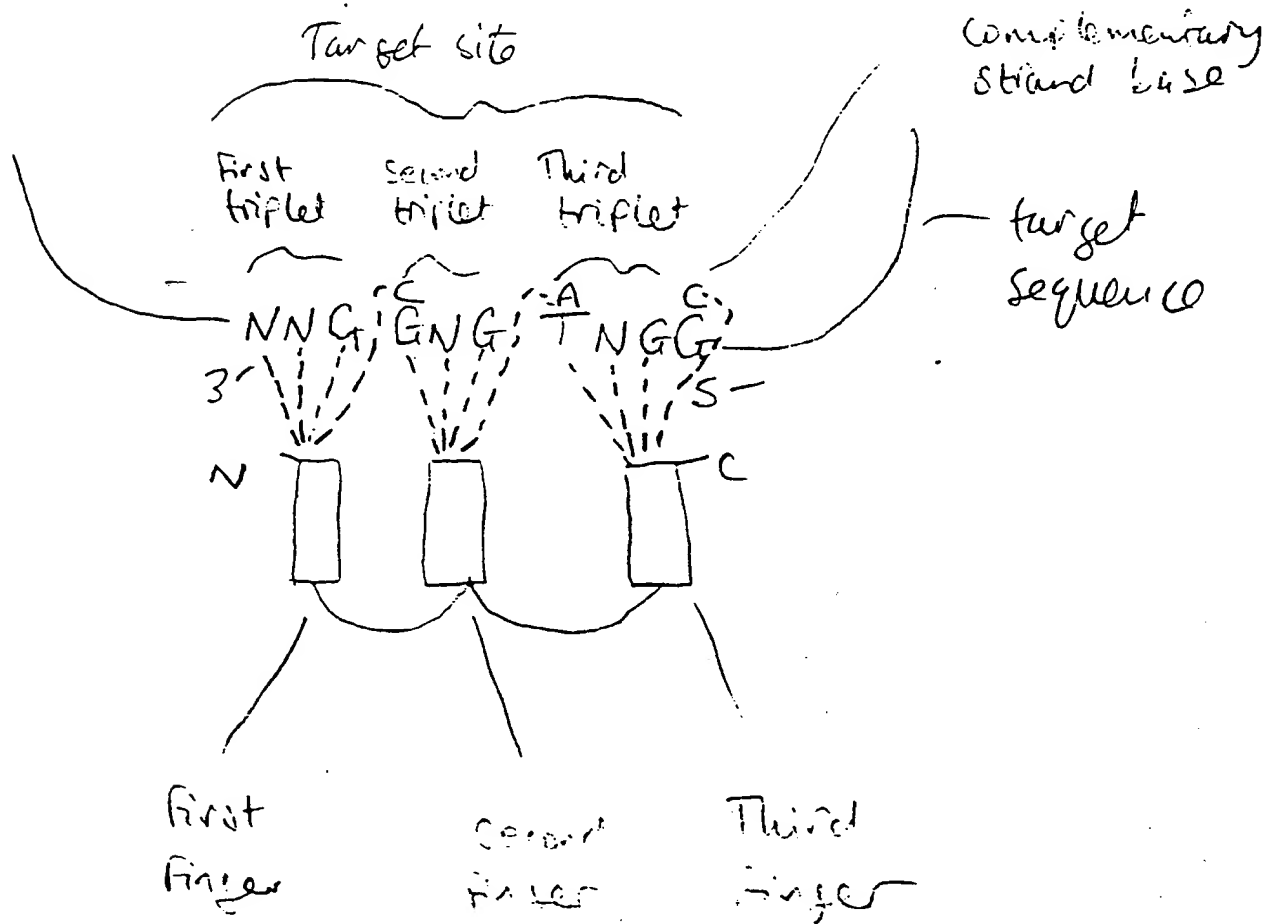 Target site
complementary
strand base
First
triplet
second
triplet
Third
triplet
target
sequence
C A C
NNG GNG TNGG
3' 5
N C
First
Finger
Second
finger
Third
Finger